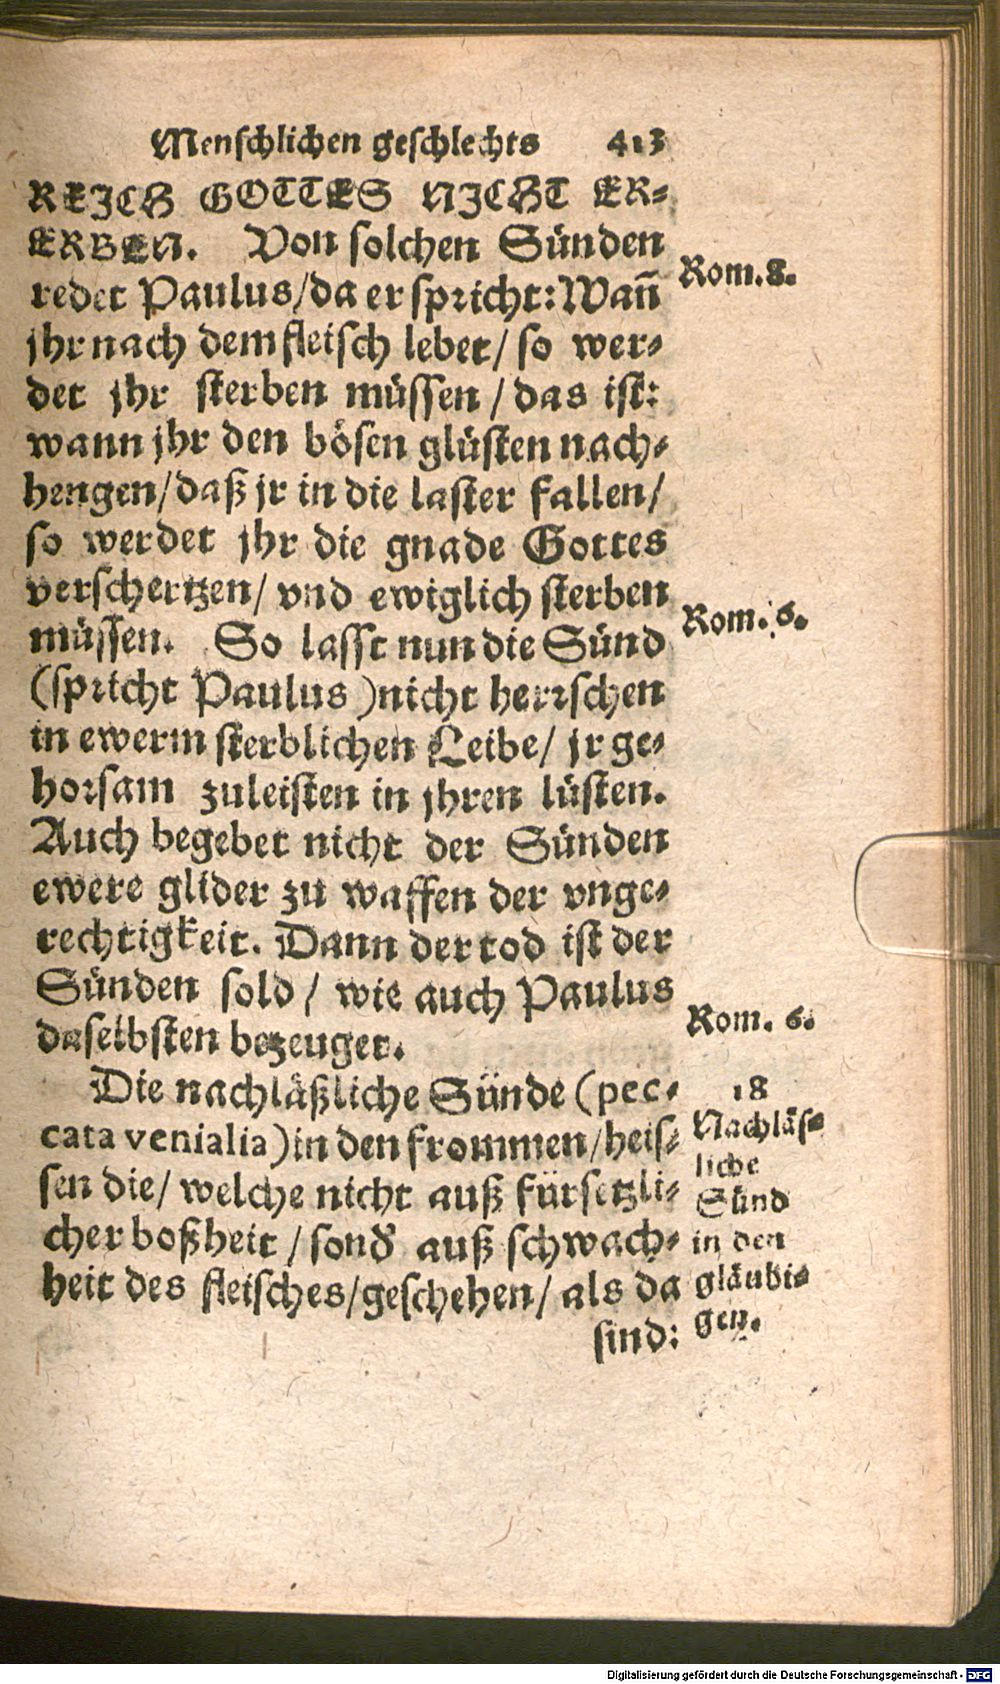 Menschlichen geschlechts 413
REJCH GOTTES NJCHT ER-
ERBEN. Von solchen Sünden
redet Paulus/da er spricht: Wañ
jhr nach dem fleisch lebet/ so wer-
det jhr sterben müssen / das ist:
wann jhr den bösen glüsten nach-
hengen/daß jr in die laster fallen/
so werdet jhr die gnade Gottes
verschertzen/ vnd ewiglich sterben
müssen. So lasst nun die Sünd
(spricht Paulus)nicht herrschen
in ewerm sterblichen Leibe/ jr ge-
horsam zuleisten in jhren lüsten.
Auch begebet nicht der Sünden
ewere glider zu waffen der vnge-
rechtigkeit. Dann der tod ist der
Sünden sold / wie auch Paulus
daselbsten bezeuget.
Die nachläßliche Sünde (pec-
cata venialia)in den frommen/heis-
sen die/ welche nicht auß fürsetzli-
cher boßheit / sond̛ auß schwach-
heit des fleisches/geschehen/ als da
sind:
Rom.8.
Rom. 6.
Rom. 6.
18
Nachläs-
liche
Sünd
in den
gläubi-
gen.
Digitalisierung gefördert durch die Deutsche Forschungsgemeinschaft - DFG